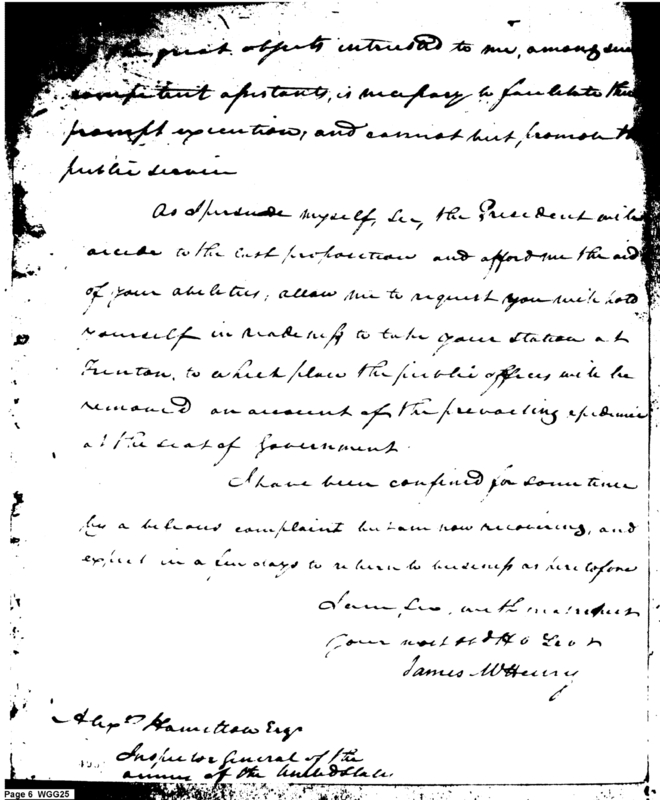 great objects intrusted to me, among such
competent assistants, is necessary to facilitate their
prompt execution, and cannot but, promote the
public service
As I persuade myself, Sir, the President will
accede to the last proposition and afford me the aid
of your abilities; allow me to request you will hold
yourself in readiness to take your station at
Trenton, to which place the public offices will be
removed on account of the prevailing epidemic
at the seat of Government.
I have been confined for some time
by a bilious complaint but am now recovering, and
expect in a few days to return to business as heretofore
I am, Sir, with
your most Obd Hb Sevt
James McHenry
Alexr Hamilton Esqr
Inspector General of the
armies of the United States
Page 6 WGG25